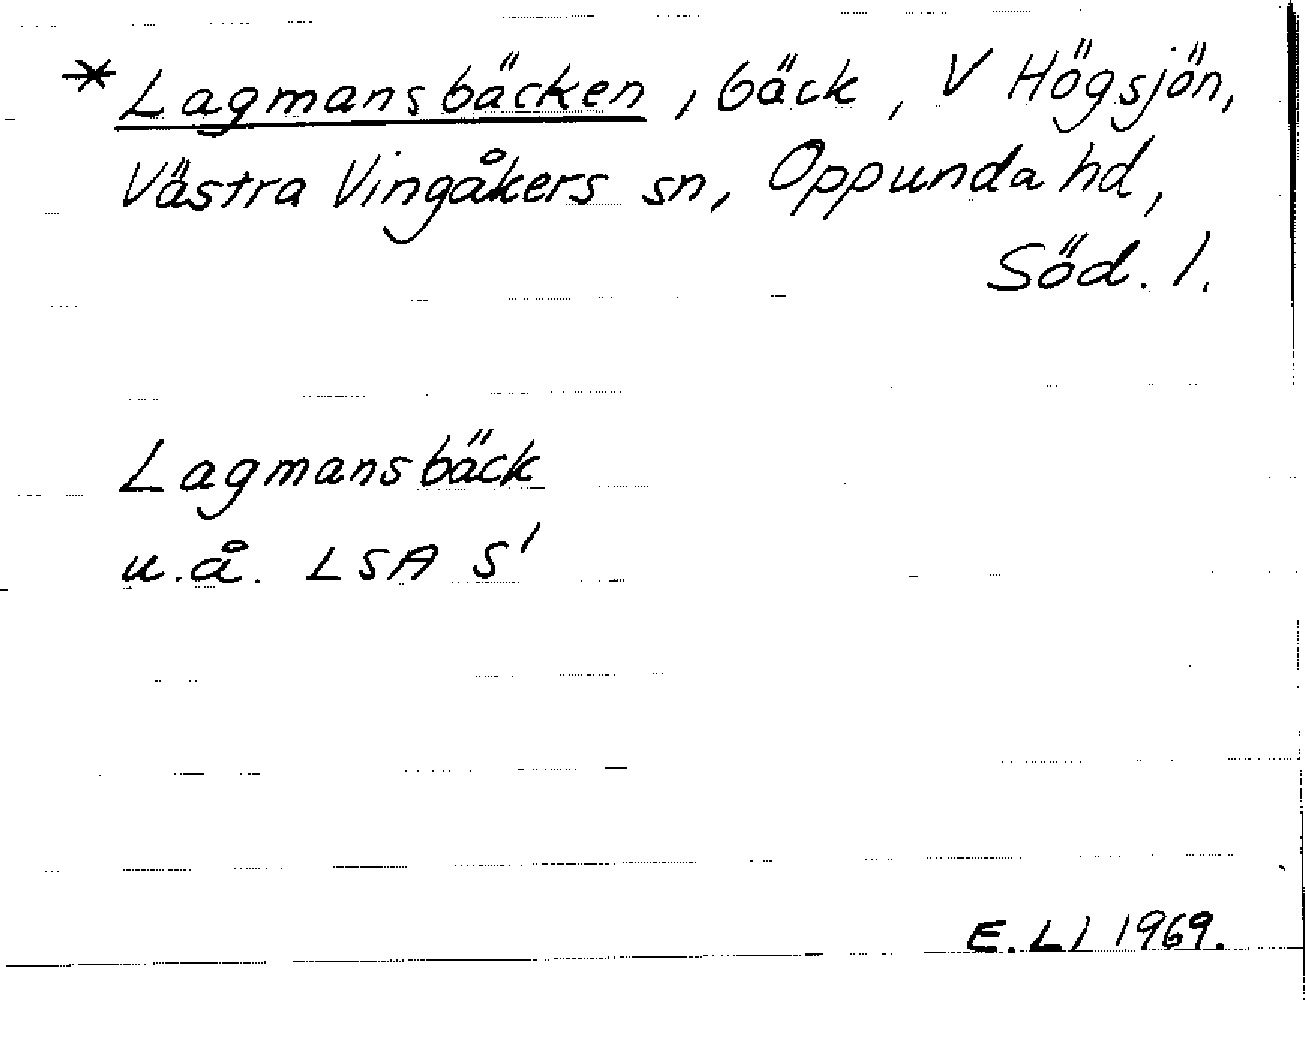 * Lagmansbäcken, bäck, V Högsjön,
Västra Vingåkers sn, Oppunda hd,
Söd. l.
Lagmansbäck
u.å. LSA S'
E. Ll 1969.